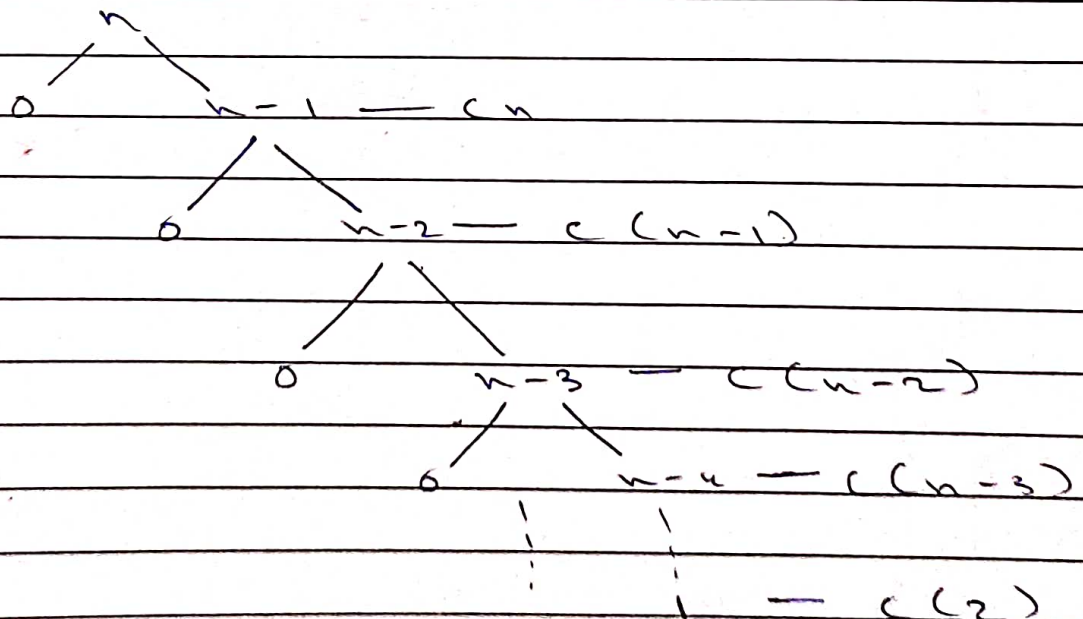 n
0 n-1 — cn
0 n-2 — c(n-1)
0 n-3 — c(n-2)
0 n-4 — c(n-3)
1 — c(2)